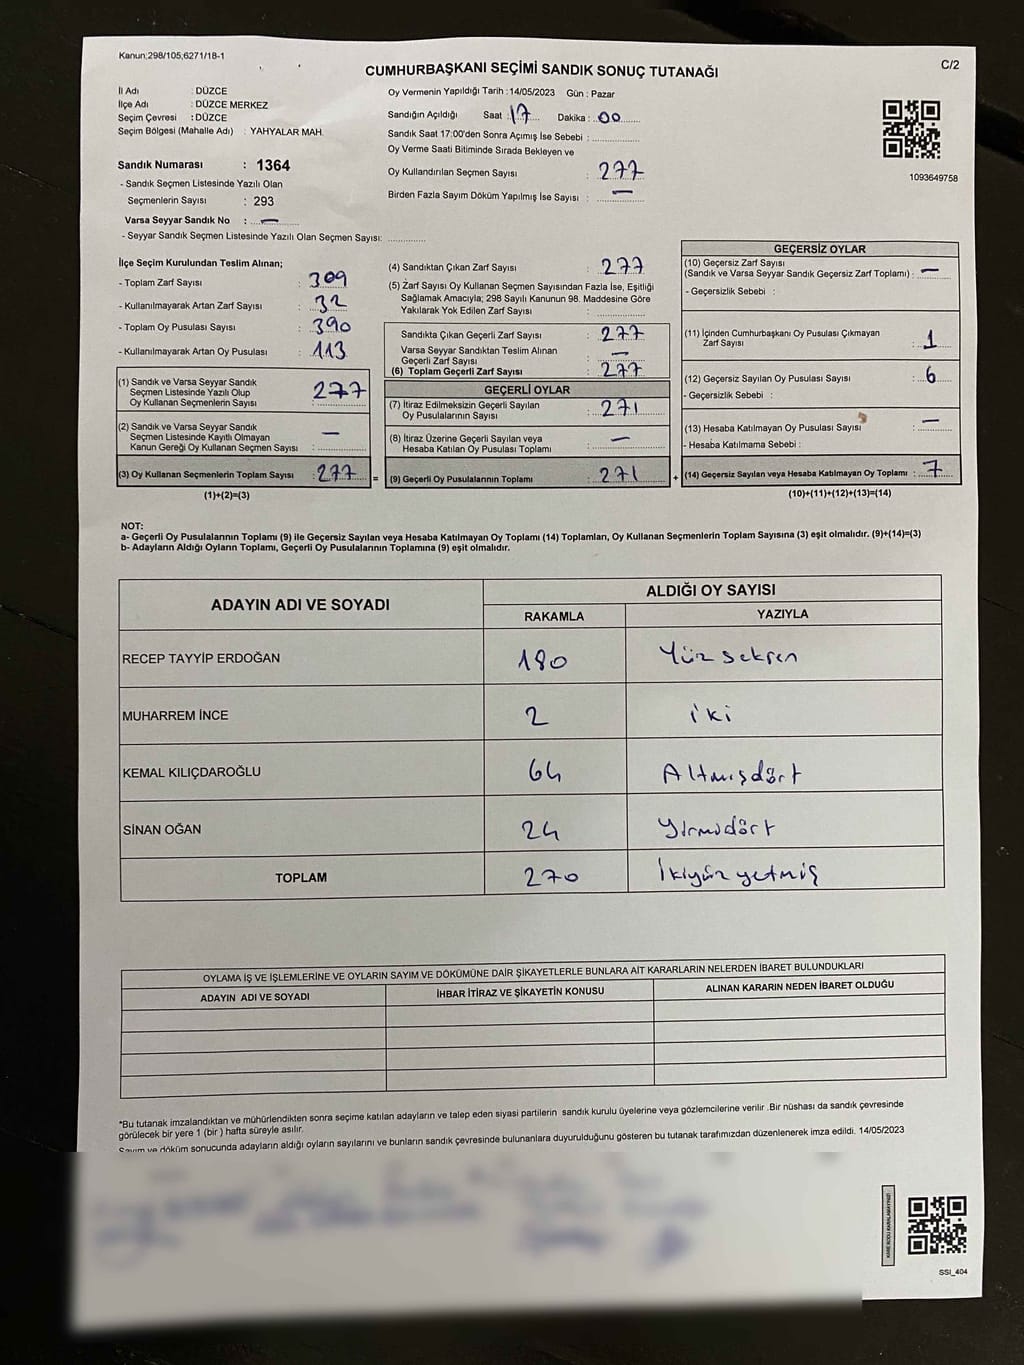 Kanun;298/105;6271/18-1
C/2
CUMHURBAŞKANI SEÇİMİ SANDIK SONUÇ TUTANAĞI
İl Adı : DÜZCE
İlçe Adı : DÜZCE MERKEZ
Seçim Çevresi : DÜZCE
Seçim Bölgesi (Mahalle Adı) : YAHYALAR MAH.
Sandık Numarası : 1364
- Sandık Seçmen Listesinde Yazılı Olan
Seçmenlerin Sayısı : 293
Varsa Seyyar Sandık No : —
- Seyyar Sandık Seçmen Listesinde Yazılı Olan Seçmen Sayısı:
Oy Vermenin Yapıldığı Tarih : 14/05/2023 Gün : Pazar
Sandığın Açıldığı Saat : 17 Dakika : 00
Sandık Saat 17:00'den Sonra Açımış İse Sebebi :
Oy Verme Saati Bitiminde Sırada Bekleyen ve
Oy Kullandırılan Seçmen Sayısı : 277
Birden Fazla Sayım Döküm Yapılmış İse Sayısı : —
1093649758
İlçe Seçim Kurulundan Teslim Alınan;
- Toplam Zarf Sayısı : 309
- Kullanılmayarak Artan Zarf Sayısı : 32
- Toplam Oy Pusulası Sayısı : 390
- Kullanılmayarak Artan Oy Pusulası : 113
(1) Sandık ve Varsa Seyyar Sandık
Seçmen Listesinde Yazılı Olup
Oy Kullanan Seçmenlerin Sayısı : 277
(2) Sandık ve Varsa Seyyar Sandık
Seçmen Listesinde Kayıtlı Olmayan
Kanun Gereği Oy Kullanan Seçmen Sayısı : —
(3) Oy Kullanan Seçmenlerin Toplam Sayısı : 277
(1)+(2)=(3)
(4) Sandıktan Çıkan Zarf Sayısı : 277
(5) Zarf Sayısı Oy Kullanan Seçmen Sayısından Fazla İse, Eşitliği
Sağlamak Amacıyla; 298 Sayılı Kanunun 98. Maddesine Göre
Yakılarak Yok Edilen Zarf Sayısı :
Sandıkta Çıkan Geçerli Zarf Sayısı : 277
Varsa Seyyar Sandıktan Teslim Alınan
Geçerli Zarf Sayısı : —
(6) Toplam Geçerli Zarf Sayısı : 277
GEÇERLİ OYLAR
(7) İtiraz Edilmeksizin Geçerli Sayılan
Oy Pusulalarının Sayısı : 271
(8) İtiraz Üzerine Geçerli Sayılan veya
Hesaba Katılan Oy Pusulası Toplamı : —
= (9) Geçerli Oy Pusulalarının Toplamı : 271
GEÇERSİZ OYLAR
(10) Geçersiz Zarf Sayısı
(Sandık ve Varsa Seyyar Sandık Geçersiz Zarf Toplamı) : —
- Geçersizlik Sebebi :
(11) İçinden Cumhurbaşkanı Oy Pusulası Çıkmayan
Zarf Sayısı : 1
(12) Geçersiz Sayılan Oy Pusulası Sayısı : 6
- Geçersizlik Sebebi :
(13) Hesaba Katılmayan Oy Pusulası Sayısı : —
- Hesaba Katılmama Sebebi :
+ (14) Geçersiz Sayılan veya Hesaba Katılmayan Oy Toplamı : 7
(10)+(11)+(12)+(13)=(14)
NOT:
a- Geçerli Oy Pusulalarının Toplamı (9) ile Geçersiz Sayılan veya Hesaba Katılmayan Oy Toplamı (14) Toplamları, Oy Kullanan Seçmenlerin Toplam Sayısına (3) eşit olmalıdır. (9)+(14)=(3)
b- Adayların Aldığı Oyların Toplamı, Geçerli Oy Pusulalarının Toplamına (9) eşit olmalıdır.
ADAYIN ADI VE SOYADI ALDIĞI OY SAYISI
RAKAMLA YAZIYLA
RECEP TAYYİP ERDOĞAN 180 Yüz seksen
MUHARREM İNCE 2 iki
KEMAL KILIÇDAROĞLU 64 Altmışdört
SİNAN OĞAN 24 Yirmidört
TOPLAM 270 İkiyüz yetmiş
OYLAMA İŞ VE İŞLEMLERİNE VE OYLARIN SAYIM VE DÖKÜMÜNE DAİR ŞİKAYETLERLE BUNLARA AİT KARARLARIN NELERDEN İBARET BULUNDUKLARI
ADAYIN ADI VE SOYADI İHBAR İTİRAZ VE ŞİKAYETİN KONUSU ALINAN KARARIN NEDEN İBARET OLDUĞU
*Bu tutanak imzalandıktan ve mühürlendikten sonra seçime katılan adayların ve talep eden siyasi partilerin sandık kurulu üyelerine veya gözlemcilerine verilir .Bir nüshası da sandık çevresinde
görülecek bir yere 1 (bir ) hafta süreyle asılır.
Sayım ve döküm sonucunda adayların aldığı oyların sayılarını ve bunların sandık çevresinde bulunanlara duyurulduğunu gösteren bu tutanak tarafımızdan düzenlenerek imza edildi. 14/05/2023
KARE KODU KARALAMAYINIZ!
SSI_404